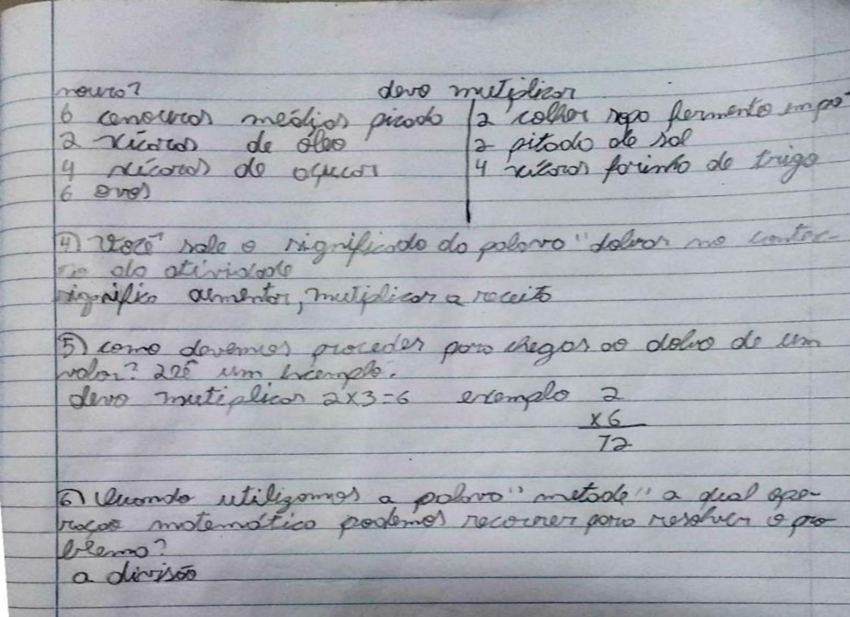 noura? devo mutiplicar
6 cenouras médias picada | 2 colher sopa fermento empo
2 xícaras de óleo | 2 pitada de sal
4 xícaras de açucar | 4 xícaras farinha de trigo
6 ovos
4) Você sabe o significado da palavra "dobrar no contex-
to da atividade
significa aumentar, mutiplicar a receita
5) como devemos proceder para chegar ao dobro de um
valor? Dê um exemplo.
devo mutiplicar 2x3=6 exemplo 2
x6
12
6) Quando utilizamos a palavra "metade" a qual ope-
raçao matemática podemos recorrer para resolver o pro-
blema?
a divisão